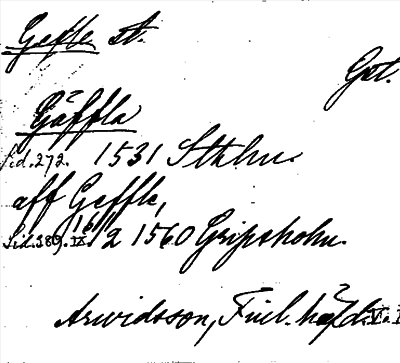 Gefle st.
Gst.
Gäffla
sid. 272. 1531 Sthlm.
aff Geffle,
sid. 289. 16/IX. 2 1560 Gripsholm.
Arwidsson, Finl. häfd. V.